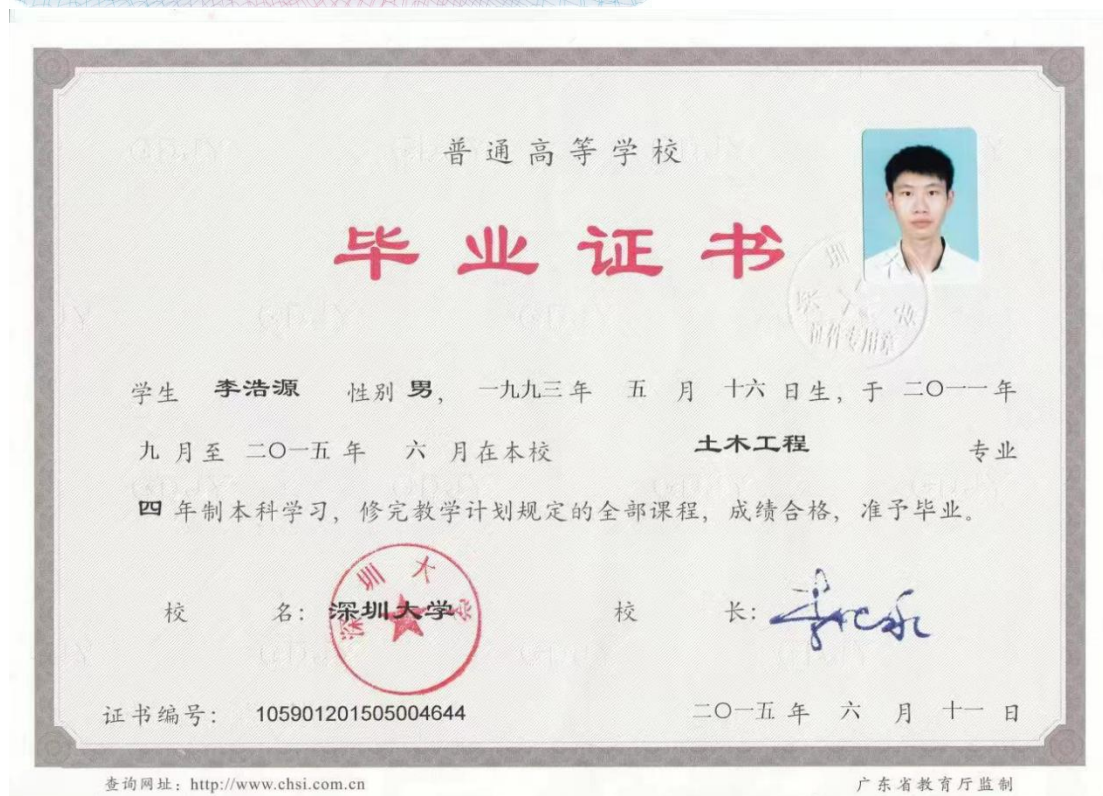 普通高等学校
毕业证书
学生 李浩源 性别 男, 一九九三年 五 月 十六 日生, 于 二〇一一年
九 月至 二〇一五 年 六 月在本校 土木工程 专业
四 年制本科学习, 修完教学计划规定的全部课程, 成绩合格, 准予毕业。
校 名: 深圳大学 校 长:
深圳大学
证件专用章
证书编号: 105901201505004644 二〇一五 年 六 月 十一 日
查询网址: http://www.chsi.com.cn 广东省教育厅监制